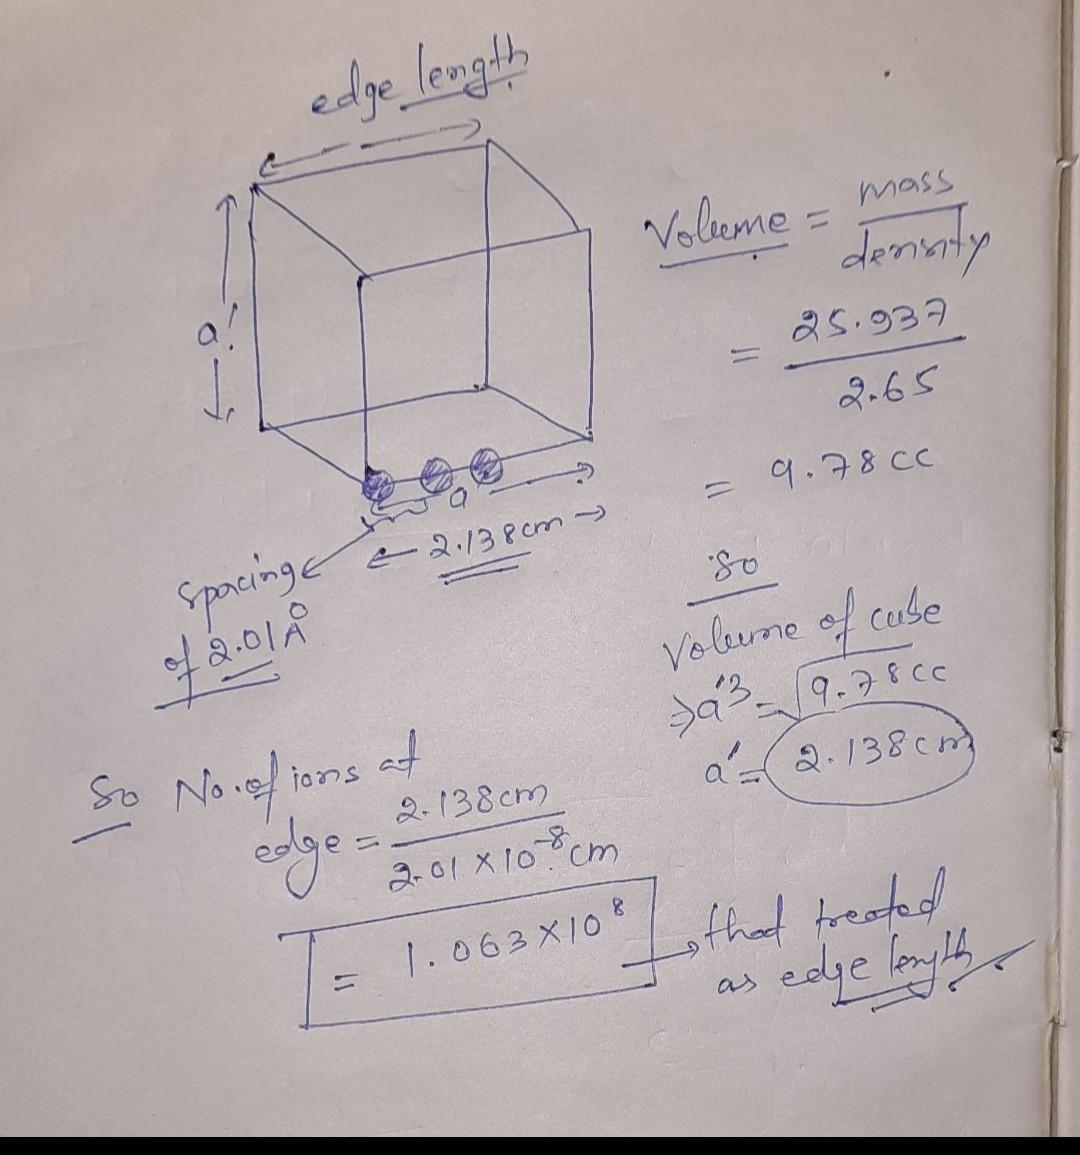 edge length
a'
a
2.138cm
spacing
of 2.01Å
Volume = mass / density
= 25.937 / 2.65
= 9.78 cc
So
Volume of cube
⇒ a'3 = √9.78cc
a' = 2.138cm
So No. of ions at
edge = 2.138cm / 2.01 × 10-8 cm
= 1.063 × 10⁸
that treated
as edge length